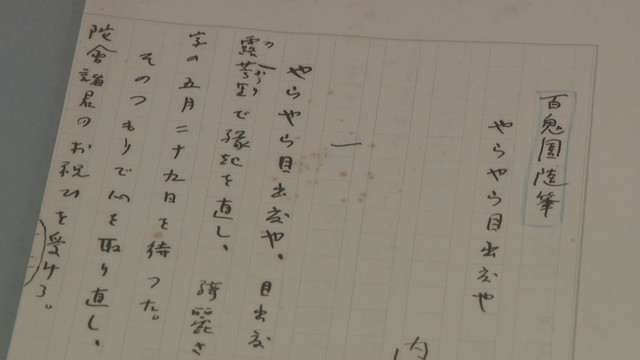 百鬼園随筆
やらやら目出度や
内
一
やらやら目出度や、目出度
で縁起を直し、綺麗さ
字の五月二十九日を待つた。
そのつもりで心を取り直し、
陀會諸君のお祝ひを受ける。